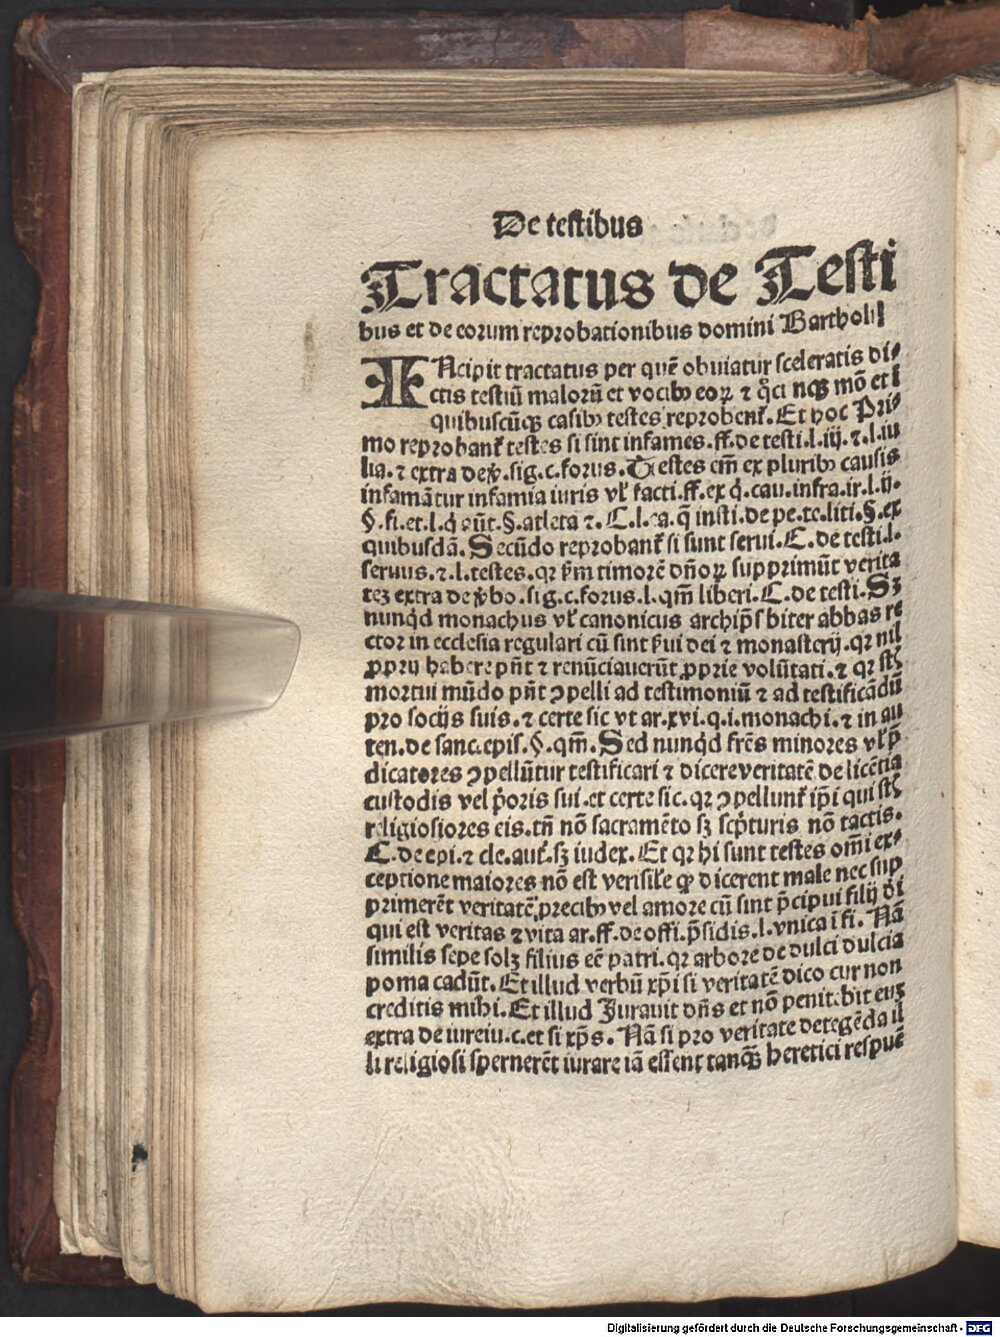 De testibus
Tractatus de Testi
bus et de eorum reprobationibus domini Bartholi
INcipit tractatus per quē obuiatur sceleratis di⸗
ctis testiū maloꝝ et vocibꝰ eoꝝ ⁊ mō et
quibuscūqꝫ casibꝰ testes reprobent᷑. Et hoc Pri⸗
mo reprobant᷑ testes si sint infames. ff. de testi. l. iij. ⁊. l. iu
lia. ⁊ extra de sig. c. forus. Testes em̄ ex pluribꝰ causis
infamātur infamia iuris vl᷑ facti. ff. ex q̇. cau. infra. ir. l. ij.
§. fi. et. l. q̇ §. atleta ⁊. C. insti. de pe. te. liti. §. ex
quibusdā. Secūdo reprobant᷑ si sunt serui. C. de testi. l.
seruus. ⁊. l. testes. qꝛ timorē dn̄oꝝ supprimūt verita
teꝫ extra de bo. sig. c. forus. l. qm̄ liberi. C. de testi. Sꝫ
nunqd monachus vl᷑ canonicus archip̄sbiter abbas re
ctor in ecclesia regulari cū sint ẜui dei ⁊ monasterij. qꝛ nil
ꝓprij habere pn̄t ⁊ renūciauerūt ꝓprie volūtati. ⁊ qꝛ
mortui mūdo pn̄t ꝯpelli ad testimoniū ⁊ ad testificādū
pro socijs suis. ⁊ certe sic vt ar. xvi. q. i. monachi. ⁊ in au
ten. de sanc. epis. §. qm̄. Sed nunqd fr̄es minores vl᷑ p̄
dicatores ꝯpellūtur testificari ⁊ dicere veritatē de licētia
custodis vel p̓oris sui. et certe sic. qꝛ ꝯpellunt᷑ ip̄i qui
religiosiores eis. tn̄ nō sacramēto sꝫ scp̓turis nō tactis.
C. de epi. ⁊ cle. aut᷑. sꝫ iudex. Et qꝛ hi sunt testes om̄i ex⸗
ceptione maiores nō est verisil᷑e ꝙ dicerent male nec sup
primerēt veritatē precibꝰ vel amore cū sint p̄cipui filij di
qui est veritas ⁊ vita ar. ff. de offi. p̄sidis. l. vnica ī fi. Nā
similis sepe solꝫ filius eē patri. qꝛ arbore de dulci dulcia
poma cadūt. Et illud verbū xp̄i si veritatē dico cur non
creditis mihi. Et illud Jurauit dn̄s et nō penitebit euꝫ
extra de iureiu. c. et si xp̄s. Nā si pro veritate detegēda il
li religiosi spernerēt iurare iā essent tanqꝫ heretici respuē
Digitalisierung gefördert durch die Deutsche Forschungsgemeinschaft - DFG